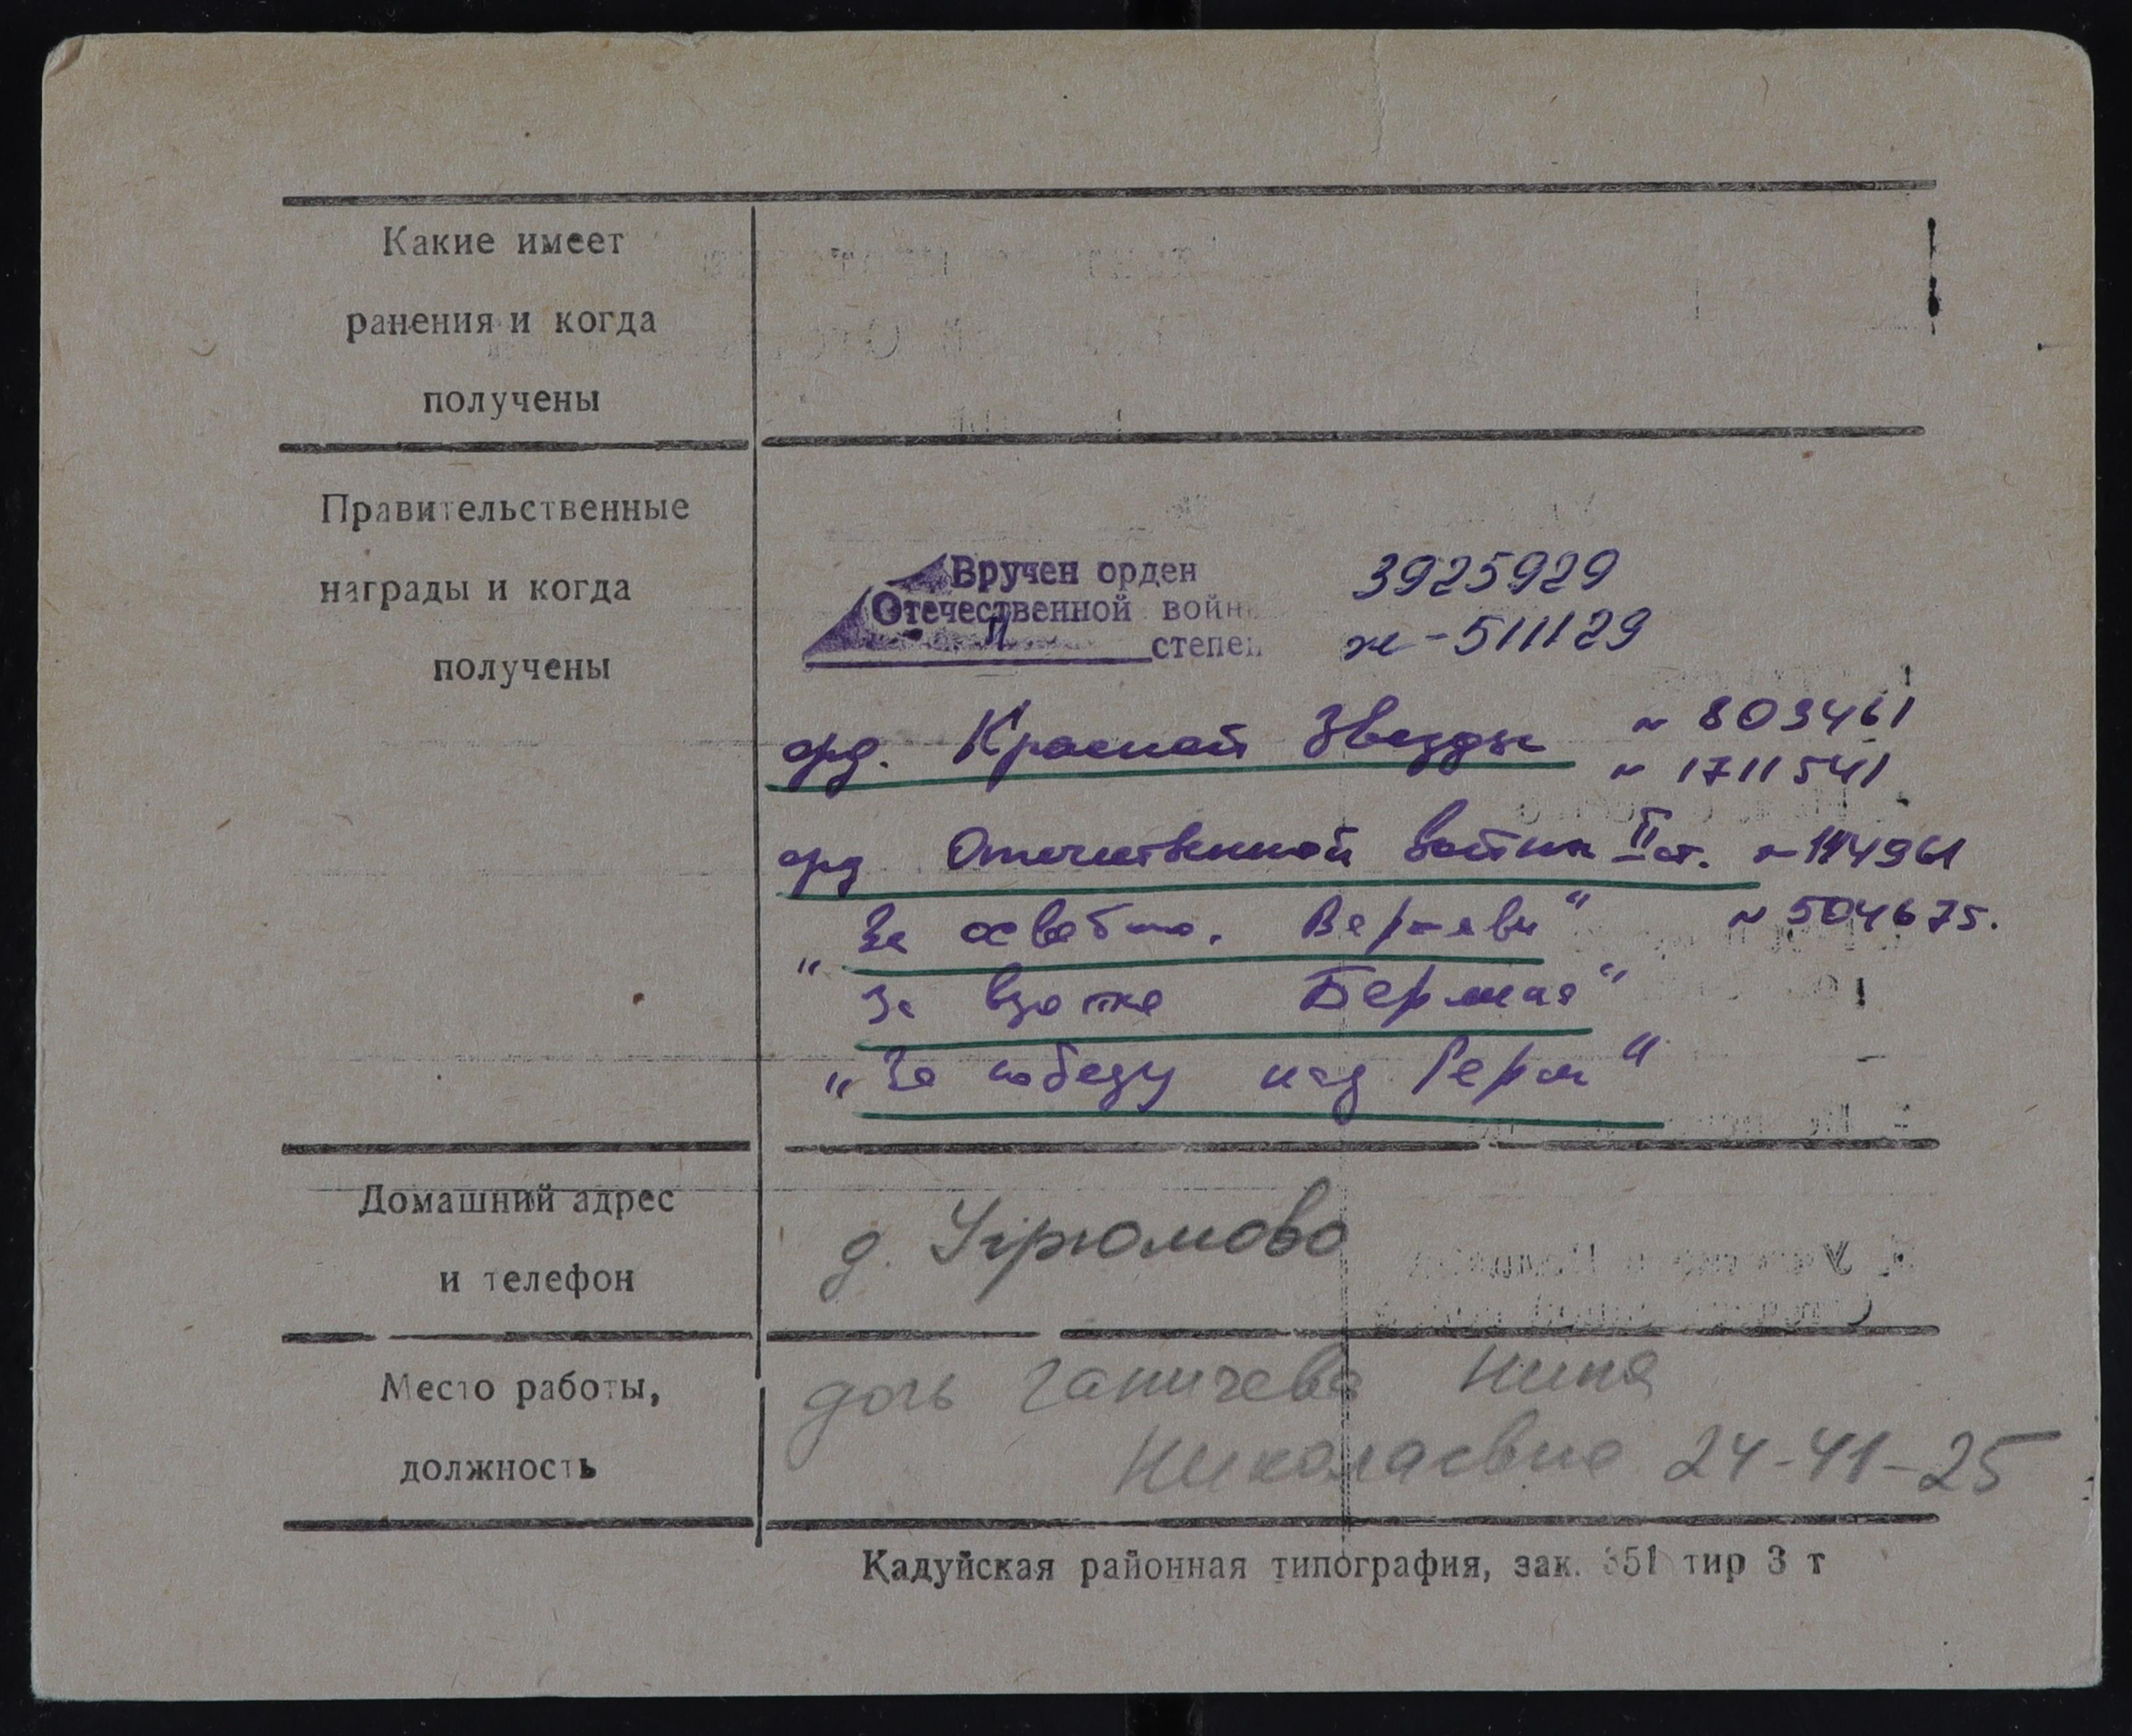 Какие имеет
ранения и когда
получены
Правительственные
награды и когда
получены
Вручен орден
Отечественной войн
II степен
3925929
ж-511129
орд. Красной Звезды
N 803461
N 1711541
орд Отечественной войны II ст. N 144961
N 504675.
„За освобожд. Варшавы“
За взятие Берлина“
„За победу над Герм“
Домашний адрес
и телефон
д. Угрюмово
Место работы,
должность
дочь Ганичева Нина
Николаевна 24-41-25
Кадуйская районная типография, зак. 351 тир 3 т